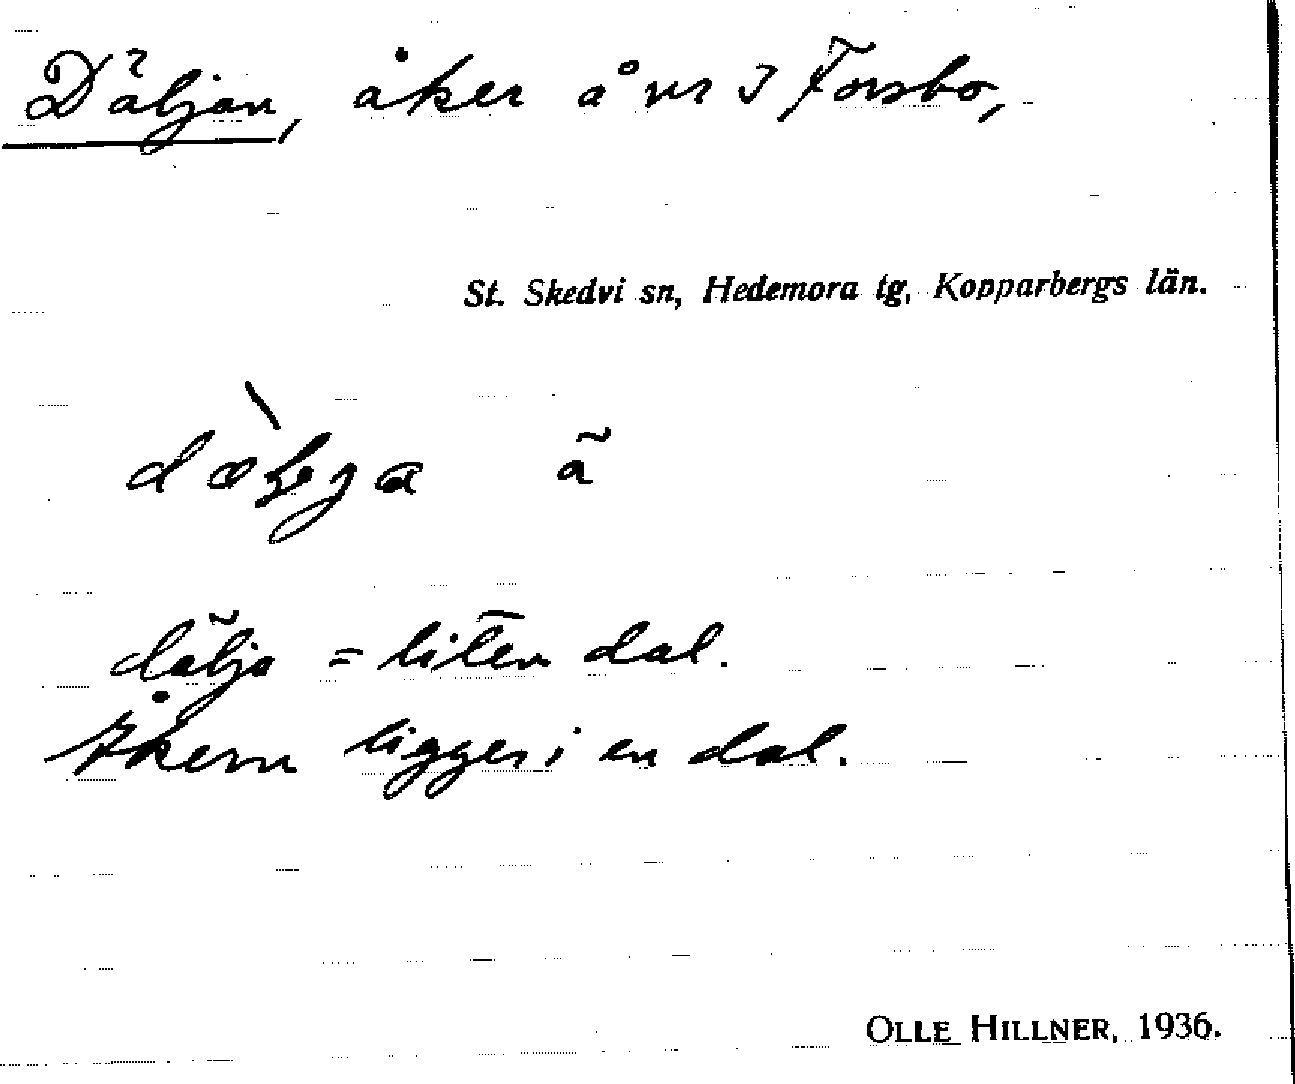 Däljan, åker å nr 3 Forsbo,
St. Skedvi sn, Hedemora tg, Kopparbergs län.
ã
dälja = liten dal.
Åkern ligger i en dal.
OLLE HILLNER, 1936.